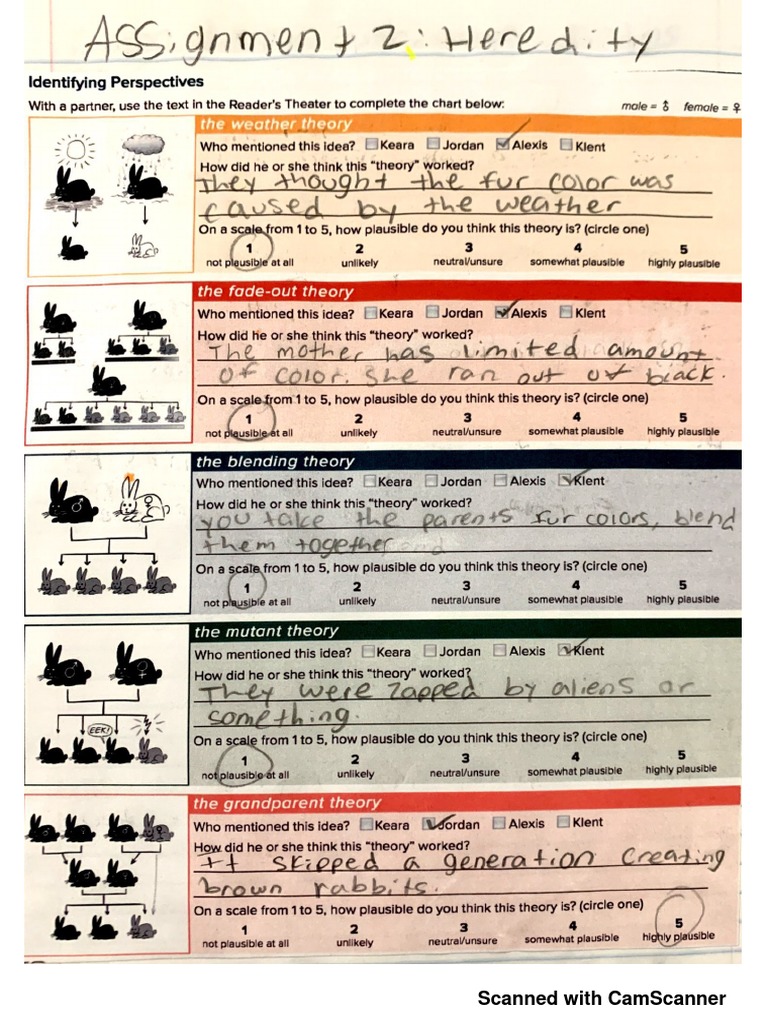 Assignment 2: Heredity
Identifying Perspectives
With a partner, use the text in the Reader's Theater to complete the chart below: male = ♂ female = ♀
the weather theory
Who mentioned this idea? Keara Jordan Alexis Klent
How did he or she think this "theory" worked?
They thought the fur color was
caused by the weather
On a scale from 1 to 5, how plausible do you think this theory is? (circle one)
1 2 3 4 5
not plausible at all unlikely neutral/unsure somewhat plausible highly plausible
the fade-out theory
Who mentioned this idea? Keara Jordan Alexis Klent
How did he or she think this "theory" worked?
The mother has limited amount
of color. she ran out of black.
On a scale from 1 to 5, how plausible do you think this theory is? (circle one)
1 2 3 4 5
not plausible at all unlikely neutral/unsure somewhat plausible highly plausible
the blending theory
Who mentioned this idea? Keara Jordan Alexis Klent
How did he or she think this "theory" worked?
you take the parents fur colors, blend
them together
On a scale from 1 to 5, how plausible do you think this theory is? (circle one)
1 2 3 4 5
not plausible at all unlikely neutral/unsure somewhat plausible highly plausible
the mutant theory
Who mentioned this idea? Keara Jordan Alexis Klent
How did he or she think this "theory" worked?
They were zapped by aliens or
something.
EEK!
On a scale from 1 to 5, how plausible do you think this theory is? (circle one)
1 2 3 4 5
not plausible at all unlikely neutral/unsure somewhat plausible highly plausible
the grandparent theory
Who mentioned this idea? Keara Jordan Alexis Klent
How did he or she think this "theory" worked?
It skipped a generation creating
brown rabbits.
On a scale from 1 to 5, how plausible do you think this theory is? (circle one)
1 2 3 4 5
not plausible at all unlikely neutral/unsure somewhat plausible highly plausible
Scanned with CamScanner